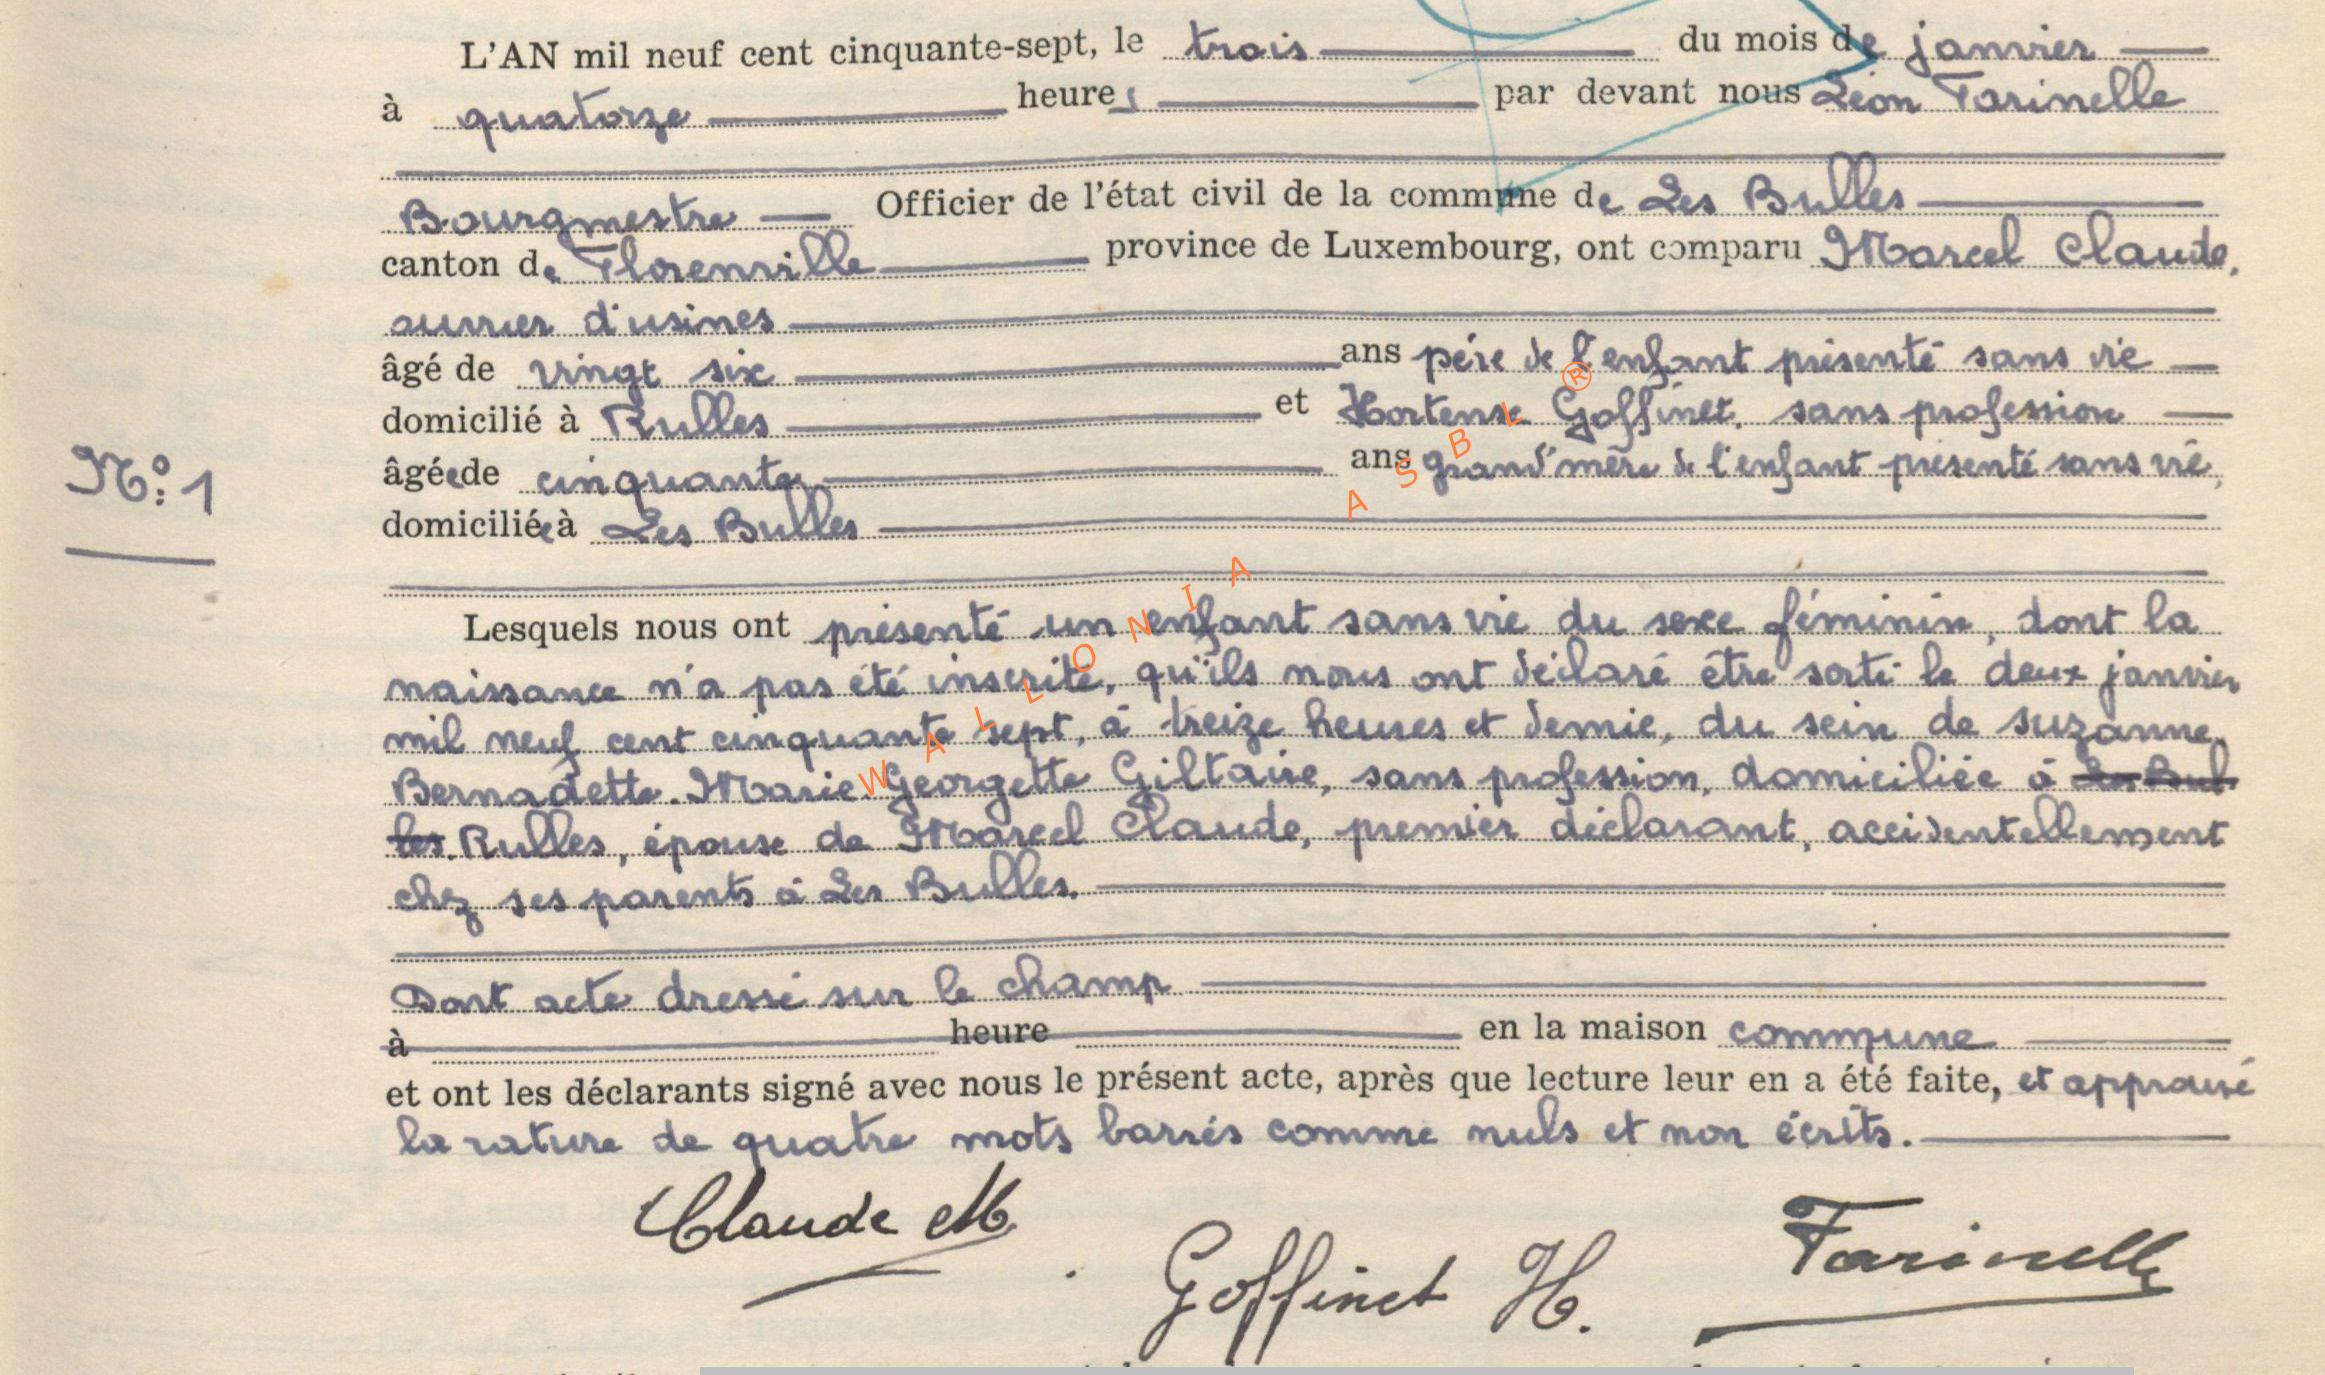 L'AN mil neuf cent cinquante-sept, le trois du mois de janvier
à quatorze heures par devant nous Léon Farinelle
Bourgmestre Officier de l'état civil de la commune de Les Bulles
canton de Florenville province de Luxembourg, ont comparu Marcel Claude,
ouvrier d'usines
âgé de vingt six ans père de l'enfant présenté sans vie
domicilié à Rulles et Hortense Goffinet, sans profession
N° 1
âgée de cinquante ans grand'mère de l'enfant présenté sans vie,
domiciliée à Les Bulles
Lesquels nous ont présenté un enfant sans vie du sexe féminin, dont la
naissance n'a pas été inscrite, qu'ils nous ont déclaré être sorti le deux janvier
mil neuf cent cinquante sept, à treize heures et demie, du sein de Suzanne.
Bernadette. Marie. Georgette Giltaire, sans profession, domiciliée à Les Bul
les. Rulles, épouse de Marcel Claude, premier déclarant, accidentellement
chez ses parents à Les Bulles.
Dont acte dressé sur le champ
à heure en la maison commune
et ont les déclarants signé avec nous le présent acte, après que lecture leur en a été faite, et approuvé
la rature de quatre mots barrés comme nuls et non écrits.
Claude M
Goffinet H.
Farinelle
WALLONIA ASBL ®